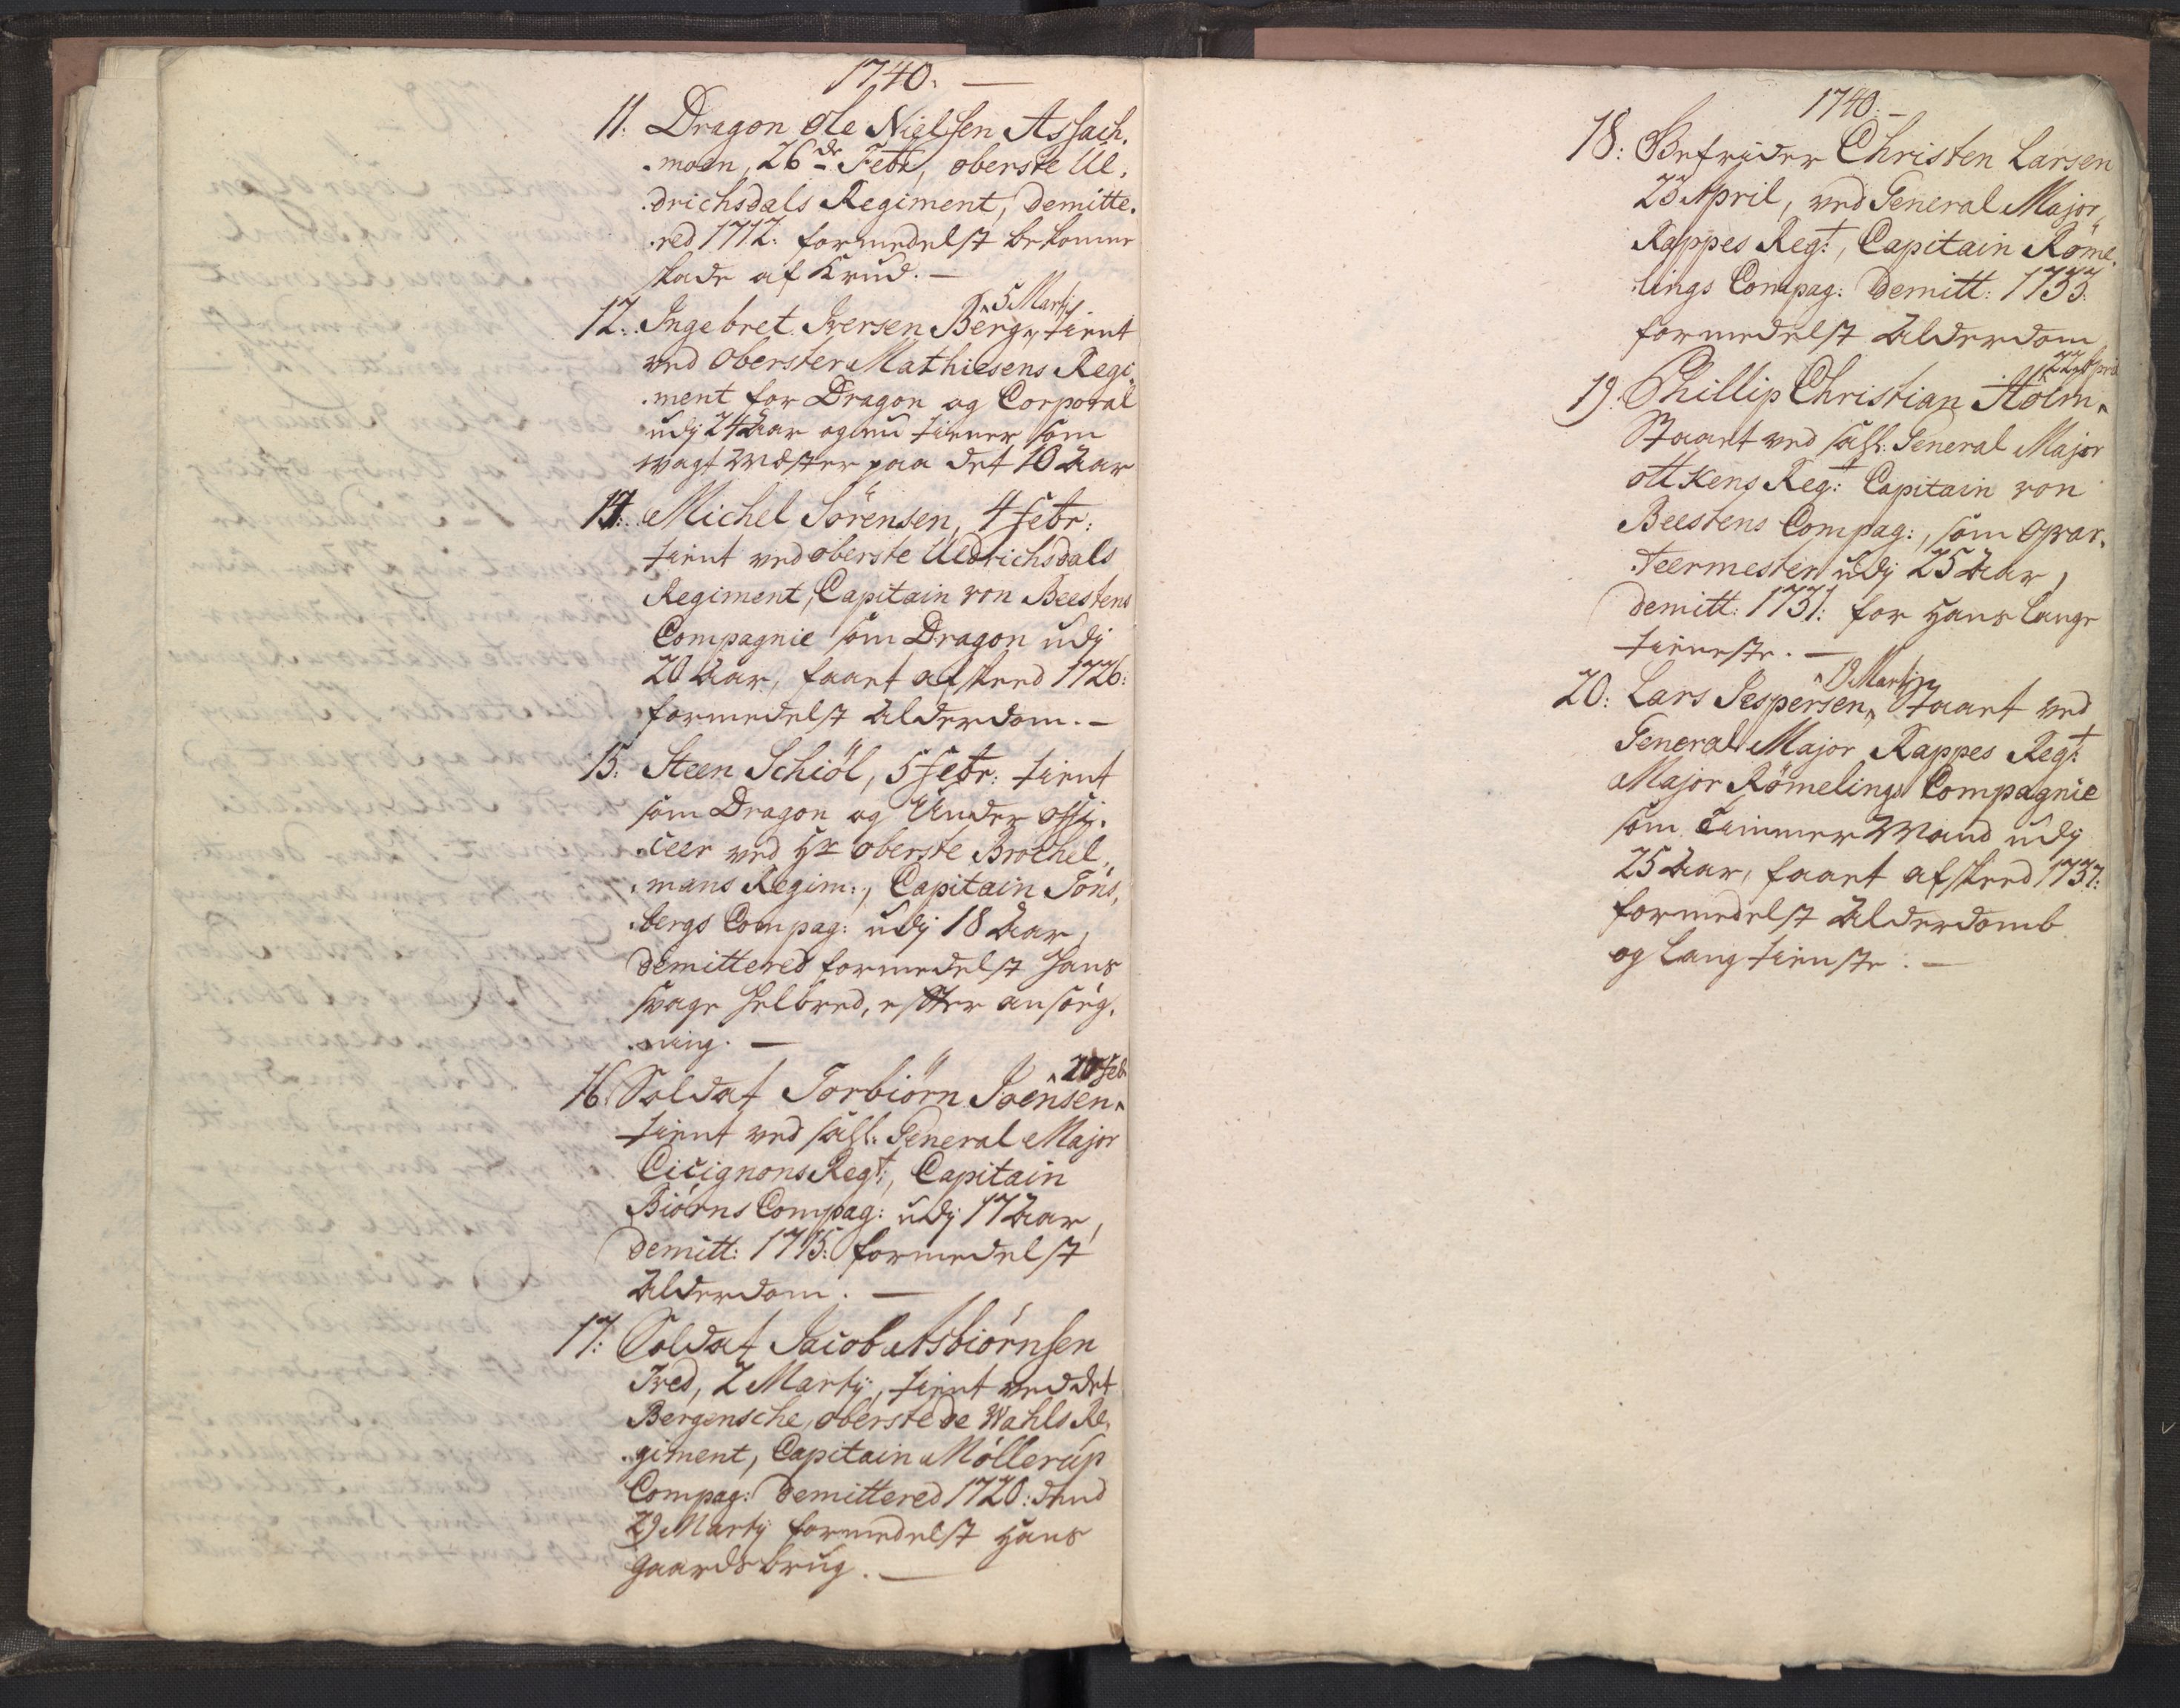 1740. —
11. Dragon Ole Nielsen Assach.
.moen, 26de Febr, oberste Ul,
.drichsdals Regiment, demitte.
.red 1712: formedelst bekomne
skade af Krud. —
5 Martj
12. Ingebret Iversen Berg, tient
ved Oberster Mathiesens Regi
.ment for Dragon og Corporal
udj 24 Aar og nu tiener som
vagt Mester paa det 10 Aar
14. Michel Sörensen, 4 Febr:
tient ved oberste Uldrichsdals
Regiment, Capitain von Beestens
Compagnie som Dragon udj
20 Aar, faaet afskeed 1726:
formedelst Alderdom. —
15: Steen Schiöl, 5 Febr: tient
som Dragon og Under offi.
.ceer ved Hr oberste Brochel,
.mans Regim:, Capitain Töns,
.bergs Compag: udj 18 Aar,
demittered formedelst hans
svage helbred, efter ansög.
.ning. —
20 Feb
16. Soldat Torbiörn Joensen
tient ved sahl. General Major
Cicignons Regt:, Capitain
Biörns Compag: udj 17 Aar,
demitt: 1715: formedelst
Alderdom. —
17: Soldat Jacob Asbiörnsen
Tved, 2 Martij, tient ved det
Bergensche, oberste de Wahls Re,
.giment, Capitain Möllerup
Compag: demittered 1720: dend
29 Martij formedelst hans
gaards brug. —
1740. —
18: Befrider Christen Larsen
23 April, ved General Major
Rappes Regt:, Capitain Röme.
.lings Compag: demitt: 1733.
formedelst Alderdom
22 April
19. Phillip Christian Holm
Staaet ved sahl. General Major
Ottkens Reg: Capitain von
Beestens Compag:, som Qvar,
.teermester udj 25 Aar,
demitt: 1731: for hans lange
tieneste. —
19 Martij
20: Lars Jespersen, Staaet ved
General Major Rappes Regt:
Major Römelings Compagnie
som Timmer Mand udj
25 Aar, faaet afskeed 1737:
formedelst Alderdomb
og lang tienste. —